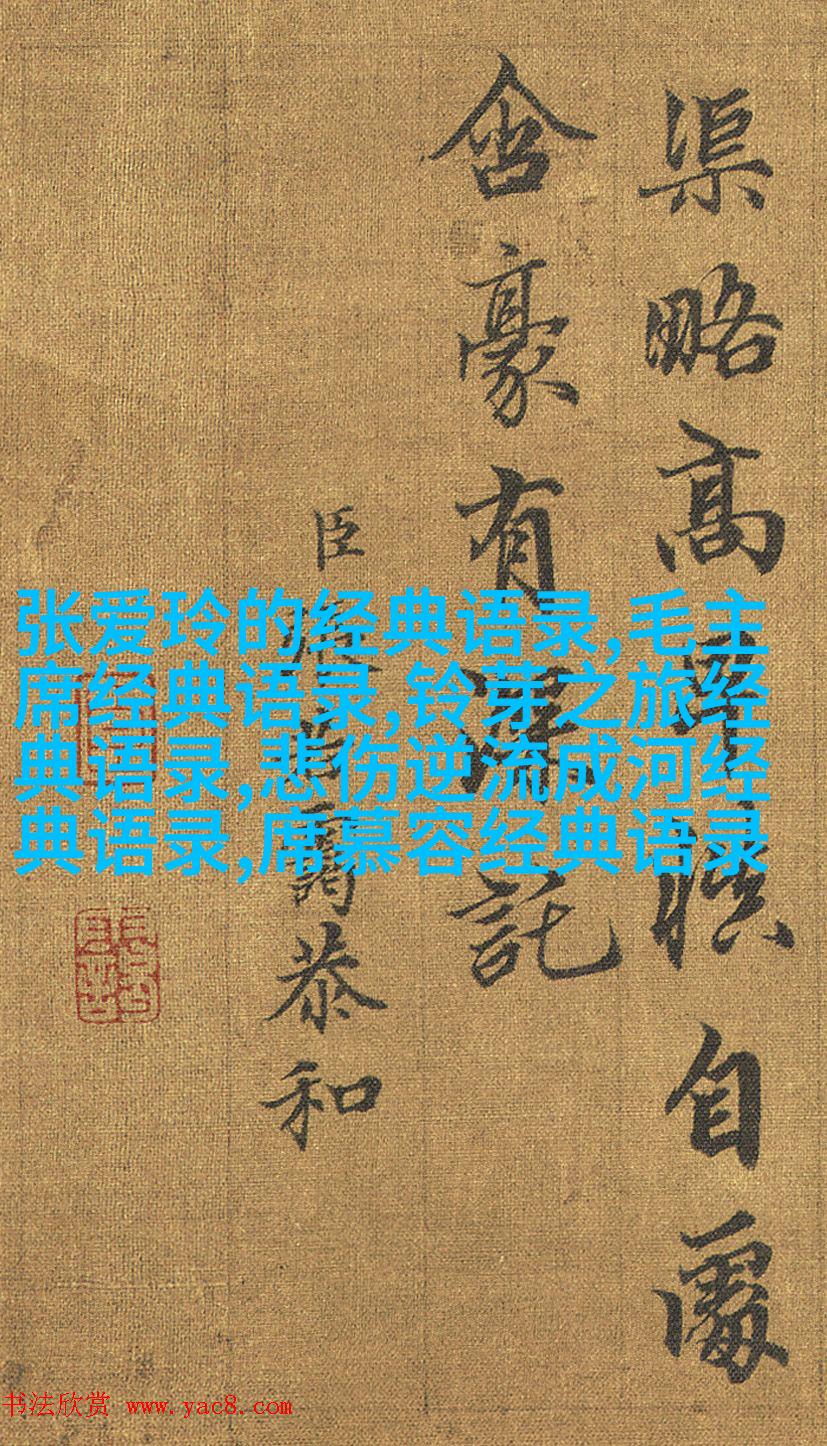 渠略高自處
含豪有深託
臣若靄恭和
张爱玲的经典语录,毛主
席经典语录,铃芽之旅经
典语录,悲伤逆流成河经
典语录,席慕容经典语录
书法欣赏 www.yac8.com